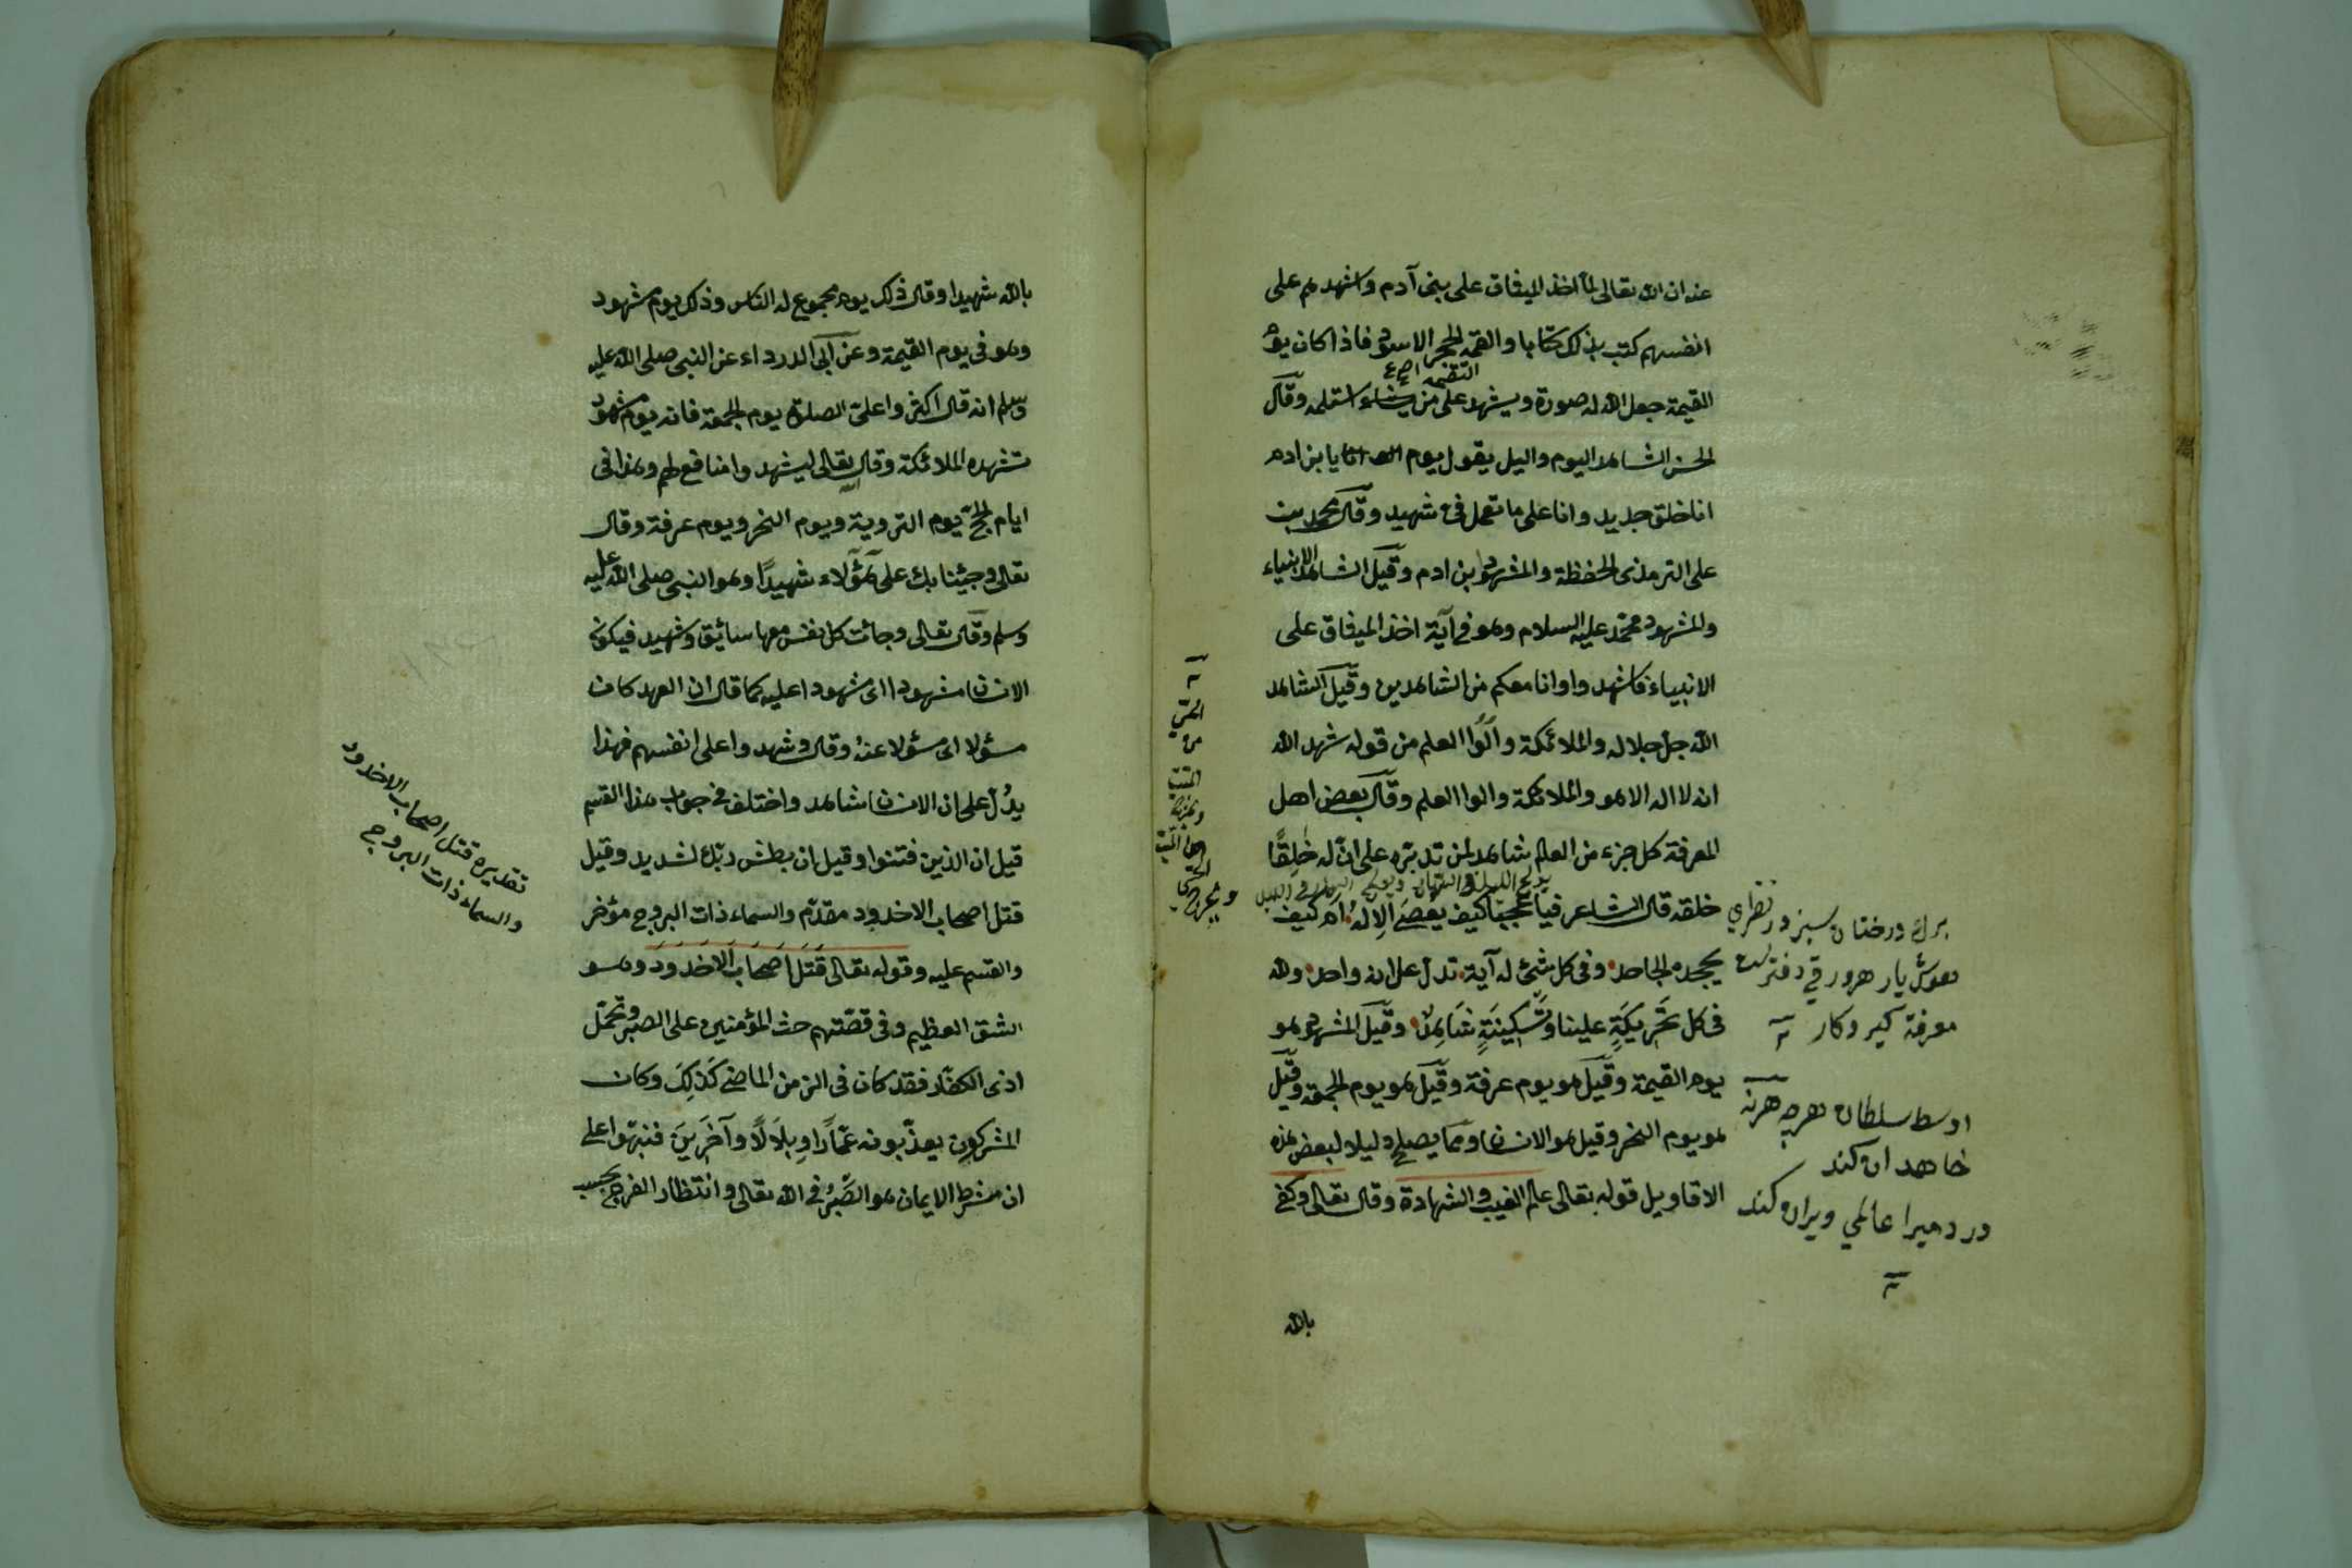 عنه ان الله تعالى لما اخذ الميثاق على بنى آدم واشهدهم على
انفسهم كتب بذلك كتابا والقمه الحجر الاسود فاذا كان يوم
التقمه
القيمة جعل الله له صورة ويشهد على من يشاء استلمه وقال
الحسن الشاهد اليوم واليل يقول يوم انا يا بن ادم
انا خلق جديد وانا على ما تعمل فىّ شهيد وقال محمد بن
على الترمذى الحفظة والمشهود ابن ادم وقيل الشاهد الانبياء
والمشهود محمّد عليه السلام وهو فى آية اخذ الميثاق على
الانبياء فاشهدوا وانا معكم من الشاهدين وقيل الشاهد
الله جل جلاله والملائكة وألوا العلم من قوله شهد الله
انه لا اله الا هو والملائكة والوا العلم وقال بعض اهل
المعرفة كل جزء من العالم شاهد لمن تدبّره على انّ له خالقًا
يولج الليل فى النهار ويولج النهار فى الليل
خلقه قال الشاعر فيا عجبًا كيف يُعصَى الإلهُ ام كيف
يجحده الجاحد وفى كل شئ له آية تدلّ على انه واحد ولله
فى كل تَحْرِيكَةٍ علينا وتَسْكِينَةٍ شَاهِدٌ وقيل المشهود هو
يوم القيمة وقيل هو يوم عرفة وقيل هو يوم الجمعة وقيل
هو يوم النحر وقيل هو الانسان ومما يصلح دليلا لبعض هذه
الاقاويل قوله تعالى عالم الغيب والشهادة وقال تعالى وكفى
بالله
برك درختان سبز در نظرى
هوش يار هر ورقى دفتر يست
معرفة كير وكار
اوسط سلطان هرچه هرنه
خاهد ان كند
در دميرا عالمى ويران كند
ويخرج الحى
من
الميت
ويخرج
الميت
من
الحى
بالله شهيدا وقال ذلك يوم مجموع له الناس وذلك يوم مشهود
وهو فى يوم القيمة وعن ابى الدرداء عن النبى صلى الله عليه
وسلم انه قال اكثروا على الصلوة يوم الجمعة فانه يوم مشهود
تشهده الملائكة وقال تعالى ليشهدوا منافع لهم وهذا فى
ايام الحجّ يوم التروية ويوم النحر ويوم عرفة وقال
تعالى وجئنا بك على هؤلاء شهيدًا وهو النبى صلى الله عليه
وسلم وقال تعالى وجائت كل نفس معها سائق وشهيد فيكون
الانسان مشهودا اى مشهودا عليه كما قال ان العهد كان
مسؤلا اى مسؤلا عنهُ وقال وشهدوا على انفسهم فهذا
يدُلّ على ان الانسان شاهد واختلف فى جواب هذا القسم
قيل ان الذين فتنوا وقيل ان بطش ربّك لشديد وقيل
قتل اصحاب الاخدود مقدّم والسماء ذات البروج مؤخر
والقسم عليه وقوله تعالى قُتِلَ اَصحَابُ الاُخدُودِ وهو
الشق العظيم وفى قصّتهم حث المؤمنين على الصبر وتحمّل
اذى الكفّار فقد كان فى الزمن الماضى كَذلِكَ وكان
المشركون يعذّبونه عَمّارًا وبِلَالًا وآخَرِينَ فنبّهوا على
ان شرط الايمان هو الصَّبرُ فى الله تعالى وانتظار الفرج بحسب
تقديره قتل اصحاب الاخدود
والسماء ذات البروج